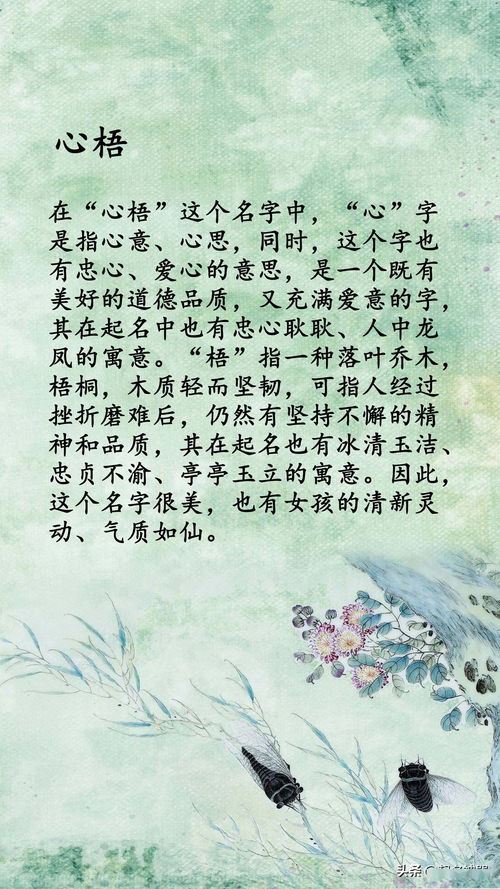 心梧
在“心梧”这个名字中，“心”字
是指心意、心思，同时，这个字也
有忠心、爱心的意思，是一个既有
美好的道德品质，又充满爱意的字，
其在起名中也有忠心耿耿、人中龙
凤的寓意。“梧”指一种落叶乔木，
梧桐，木质轻而坚韧，可指人经过
挫折磨难后，仍然有坚持不懈的精
神和品质，其在起名也有冰清玉洁、
忠贞不渝、亭亭玉立的寓意。因此，
这个名字很美，也有女孩的清新灵
动、气质如仙。
头条